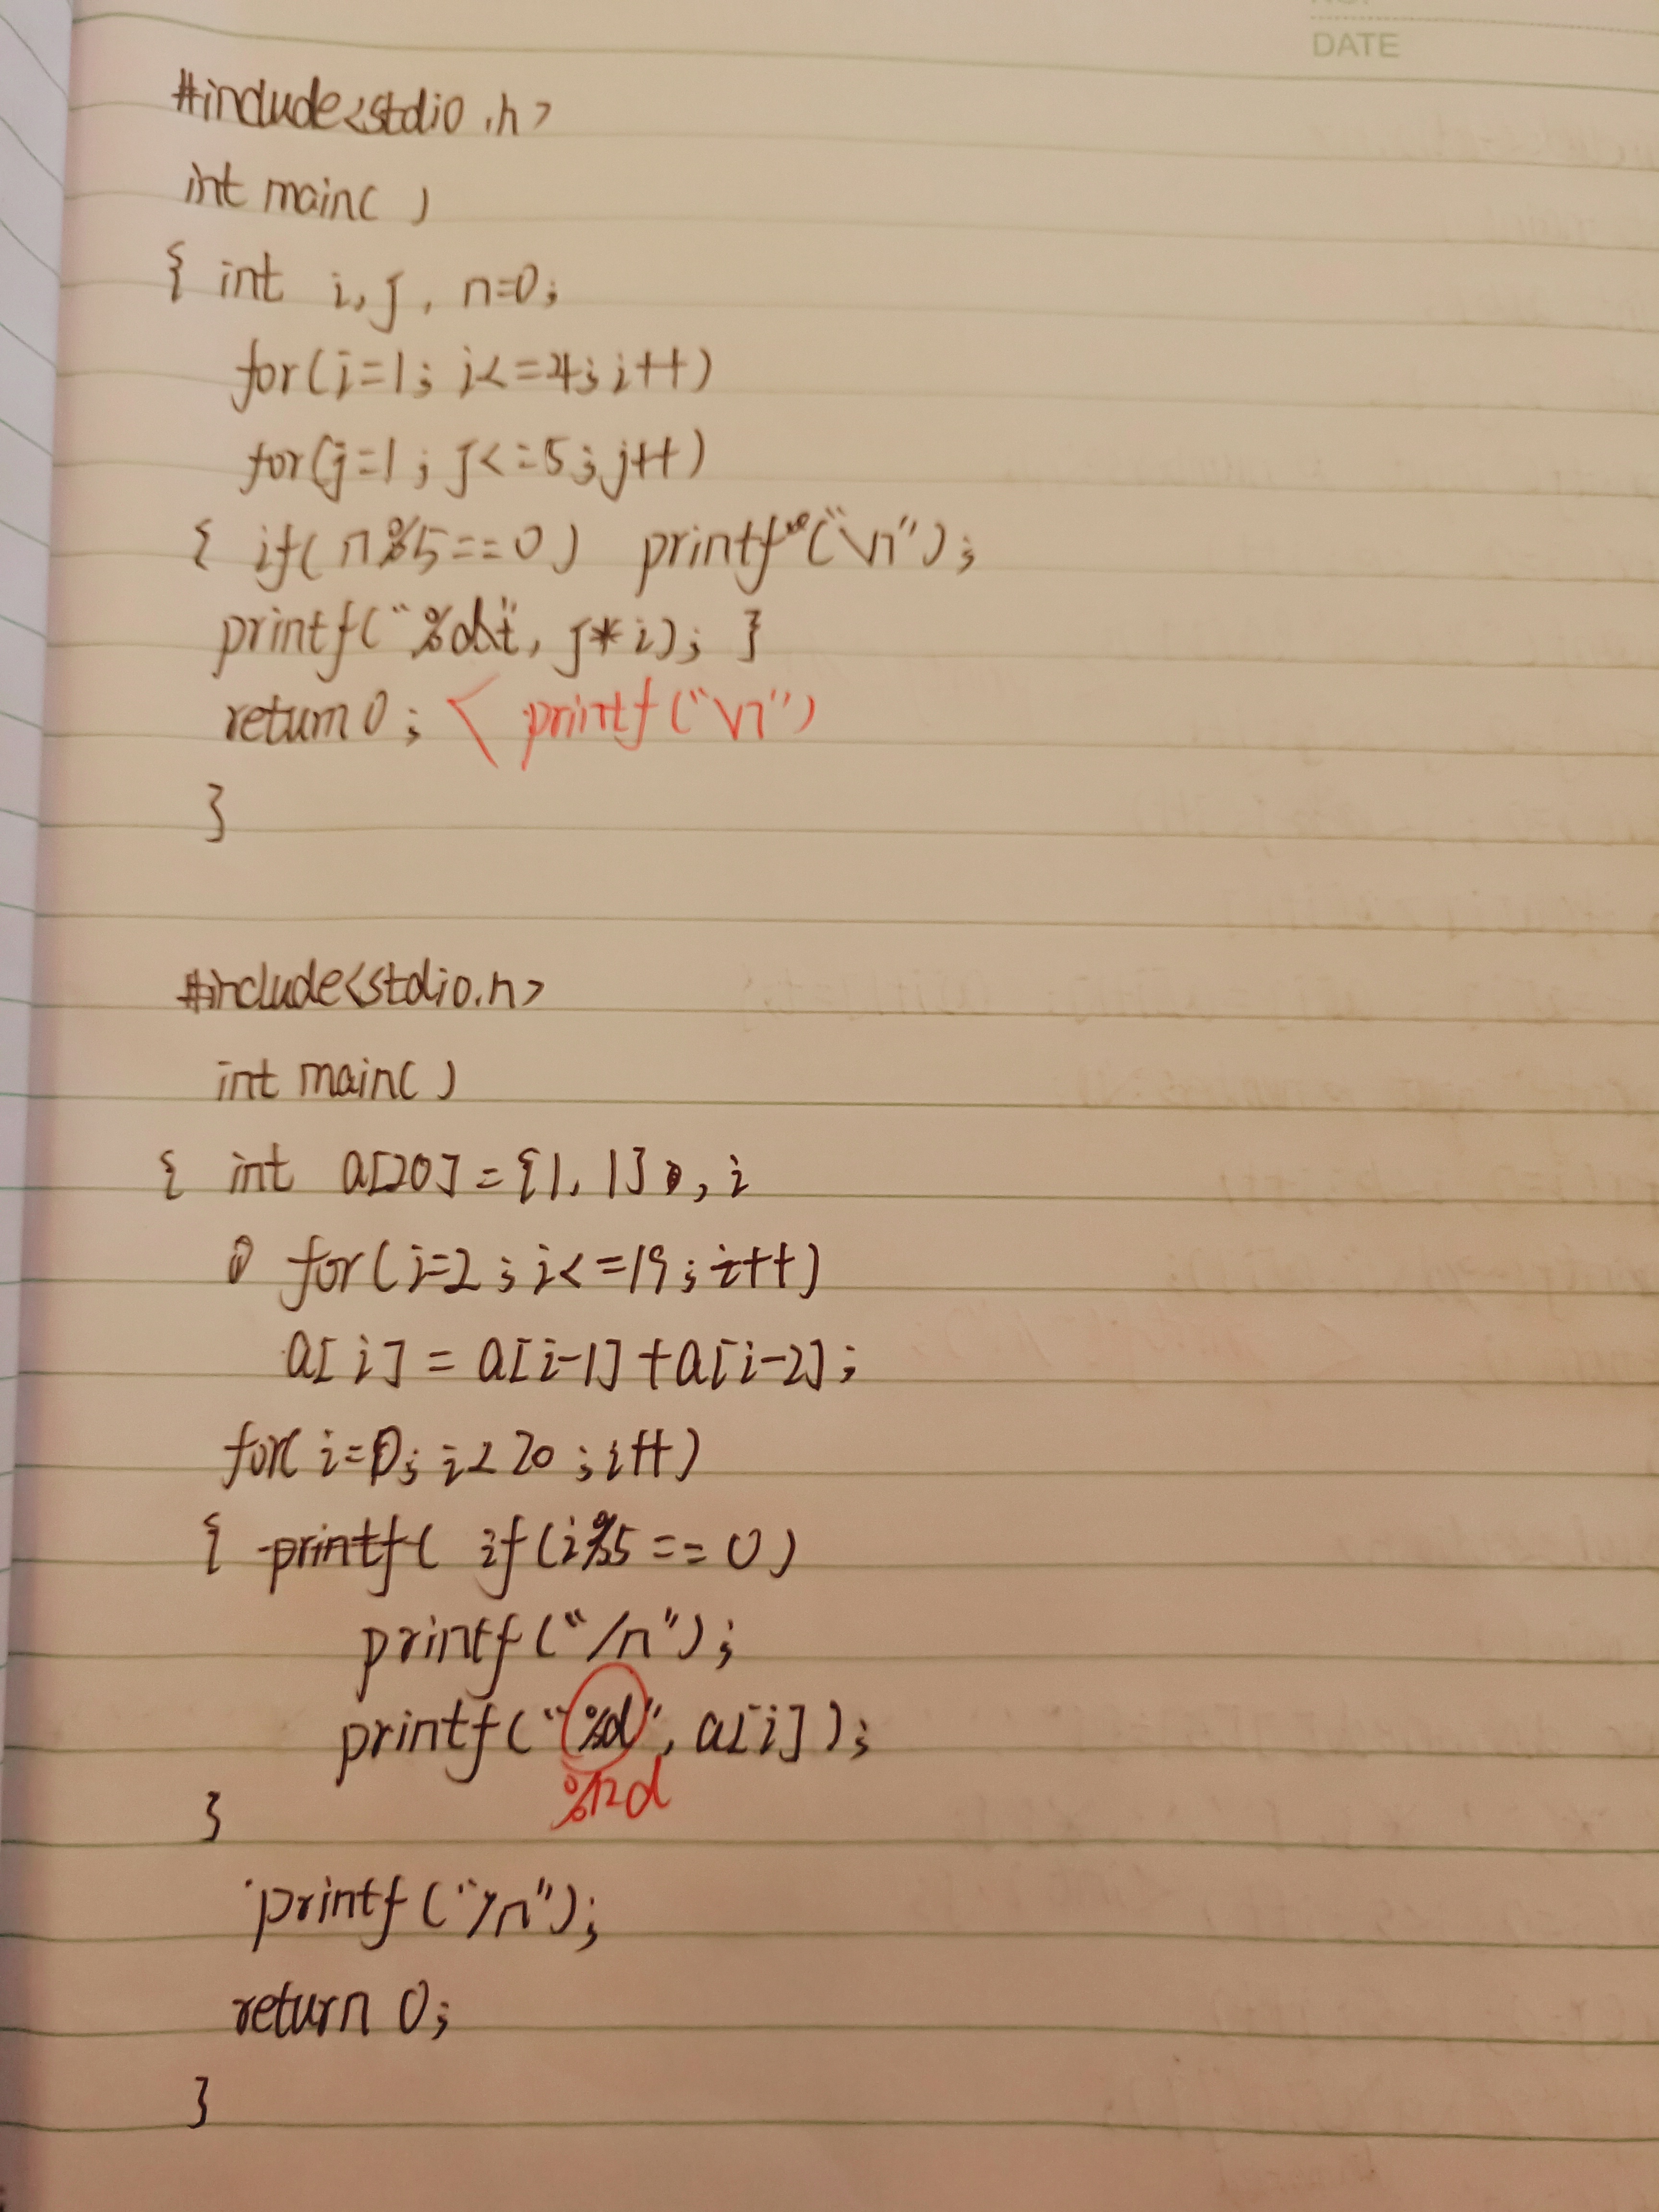 DATE
#include<stdio.h>
int main( )
{ int i, j, n=0;
for(i=1; i<=4; i++)
for(j=1; j<=5; j++)
{ if( n%5==0) printf("\n");
printf("%d\t", j*i); }
return 0; < printf("\n")
}
#include<stdio.h>
int main( )
{ int a[20]={1, 1}, i
for(i=2; i<=19; i++)
a[i] = a[i-1]+a[i-2];
for( i=0; i<20; i++)
{ printf( if(i%5==0)
printf("/n");
printf("%d", a[i]);
%12d
}
printf("/n");
return 0;
}